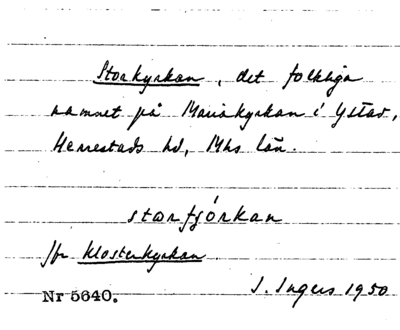 Storkyrkan, det folkliga
namnet på Mariakyrkan i Ystad,
Herrestads hd, Mhs län.
storfjórkan
Jfr Klosterkyrkan
Nr 5640.
I. Ingers 1950